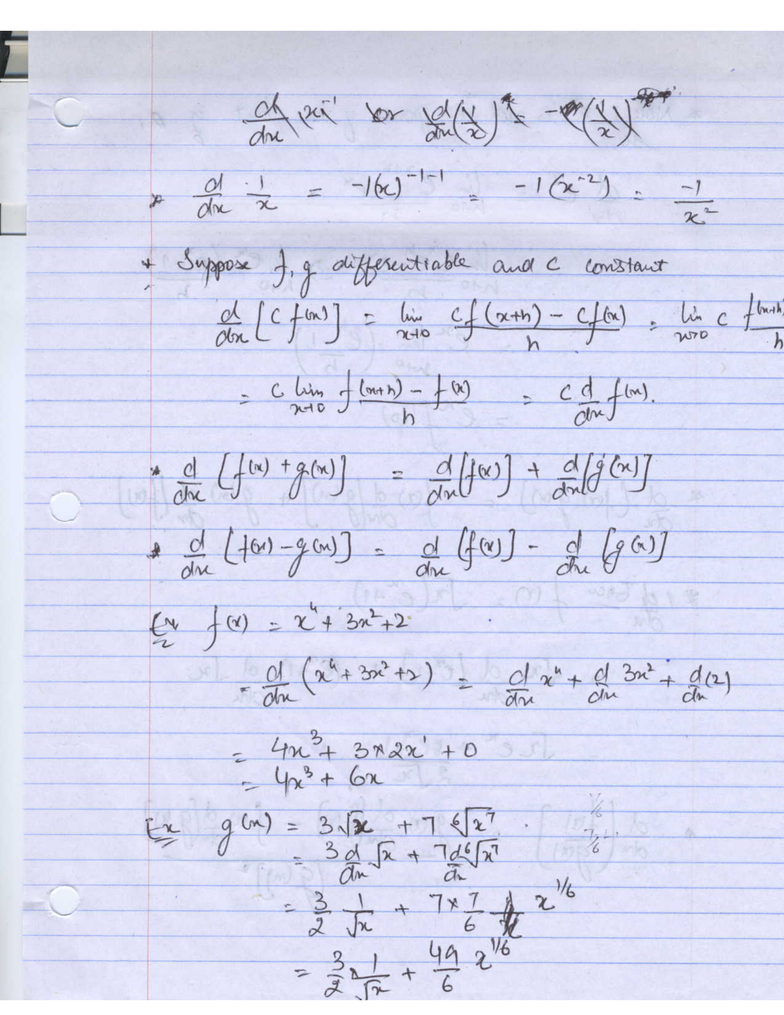 d/dx x⁻¹ or d/dx (1/x) - (1/x)
* d/dx 1/x = -1(x)⁻¹⁻¹ = -1(x⁻²) = -1/x²
* Suppose f, g differentiable and C constant
d/dx [C f(x)] = lim x→0 Cf(x+h) - Cf(x) / h = lim x→0 C f(x+h) / h
= C lim x→0 f(x+h) - f(x) / h = C d/dx f(x).
* d/dx [f(x) + g(x)] = d/dx [f(x)] + d/dx [g(x)]
* d/dx [f(x) - g(x)] = d/dx [f(x)] - d/dx [g(x)]
Ex f(x) = x⁴ + 3x² + 2
= d/dx (x⁴ + 3x² + 2) = d/dx x⁴ + d/dx 3x² + d/dx (2)
= 4x³ + 3×2x¹ + 0
= 4x³ + 6x
Ex g(x) = 3√x + 7 ⁶√x⁷
= 3 d/dx √x + 7 d/dx ⁶√x⁷
= 3/2 1/√x + 7×7/6 x^1/6
= 3/2 × 1/√x + 49/6 x^1/6